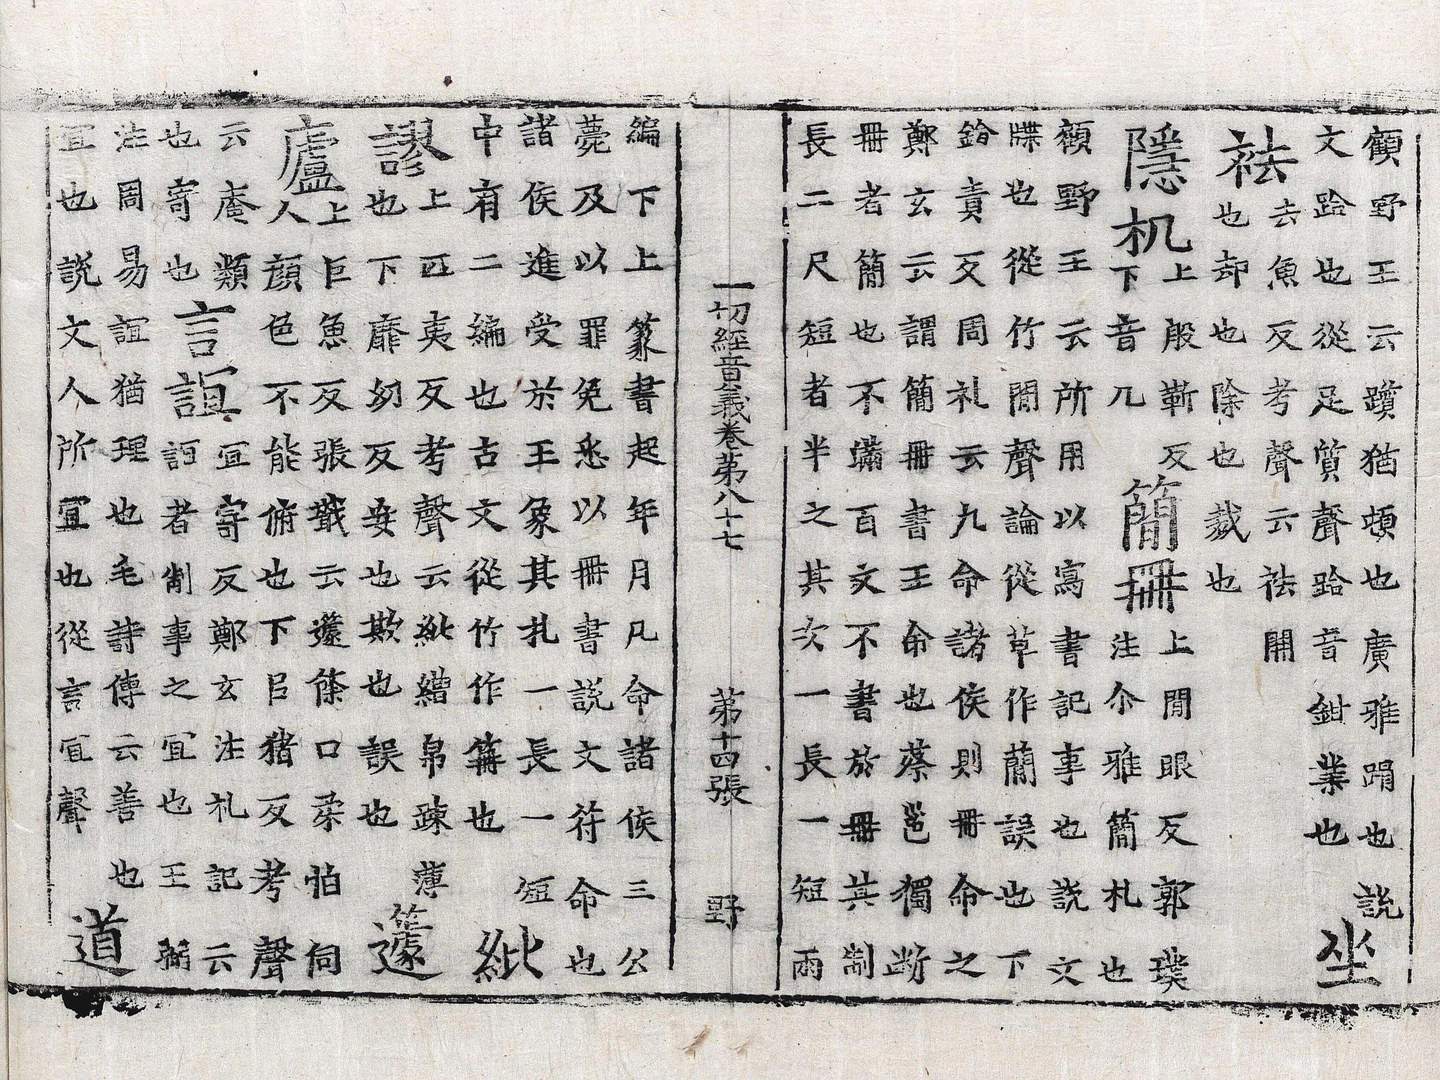 顧野王云躓猶頓也廣雅蹋也說
文跲也從足質聲跲音鉗業也坐
祛去魚反考聲云祛開
也却也除也裁也
隱机上殷靳反
下音几
簡冊上閒眼反郭璞
注尒雅簡札也
顧野王云所用以寫書記事也說文
牒也從竹閒聲論從草作蕳誤也下
責反周礼云九命諸侯則冊命之
鄭玄云謂簡冊書王命也蔡邕獨断
冊者簡也不滿百文不書於冊其制
長二尺短者半之其次一長一短兩
一切經音義卷第八十七 第十四張 野
編下上篆書起年月凡命諸侯三公
薨及以罪免悉以冊書說文符命也
諸侯進受於王象其扎一長一短
中有二編也古文從竹作笧也紕
謬上匹夷反考聲云紕繒帛疎薄
也下靡幼反妄也欺也誤也籧
廬上巨魚反張戩云籧篨口柔怕伺
人顏色不能俯也下吕猪反考聲
云菴類
也寄也
言誼宜寄反鄭玄注札記云
誼者制事之宜也王弼
注周易誼猶理也毛詩傳云善也
宜也說文人所宜也從言宜聲道